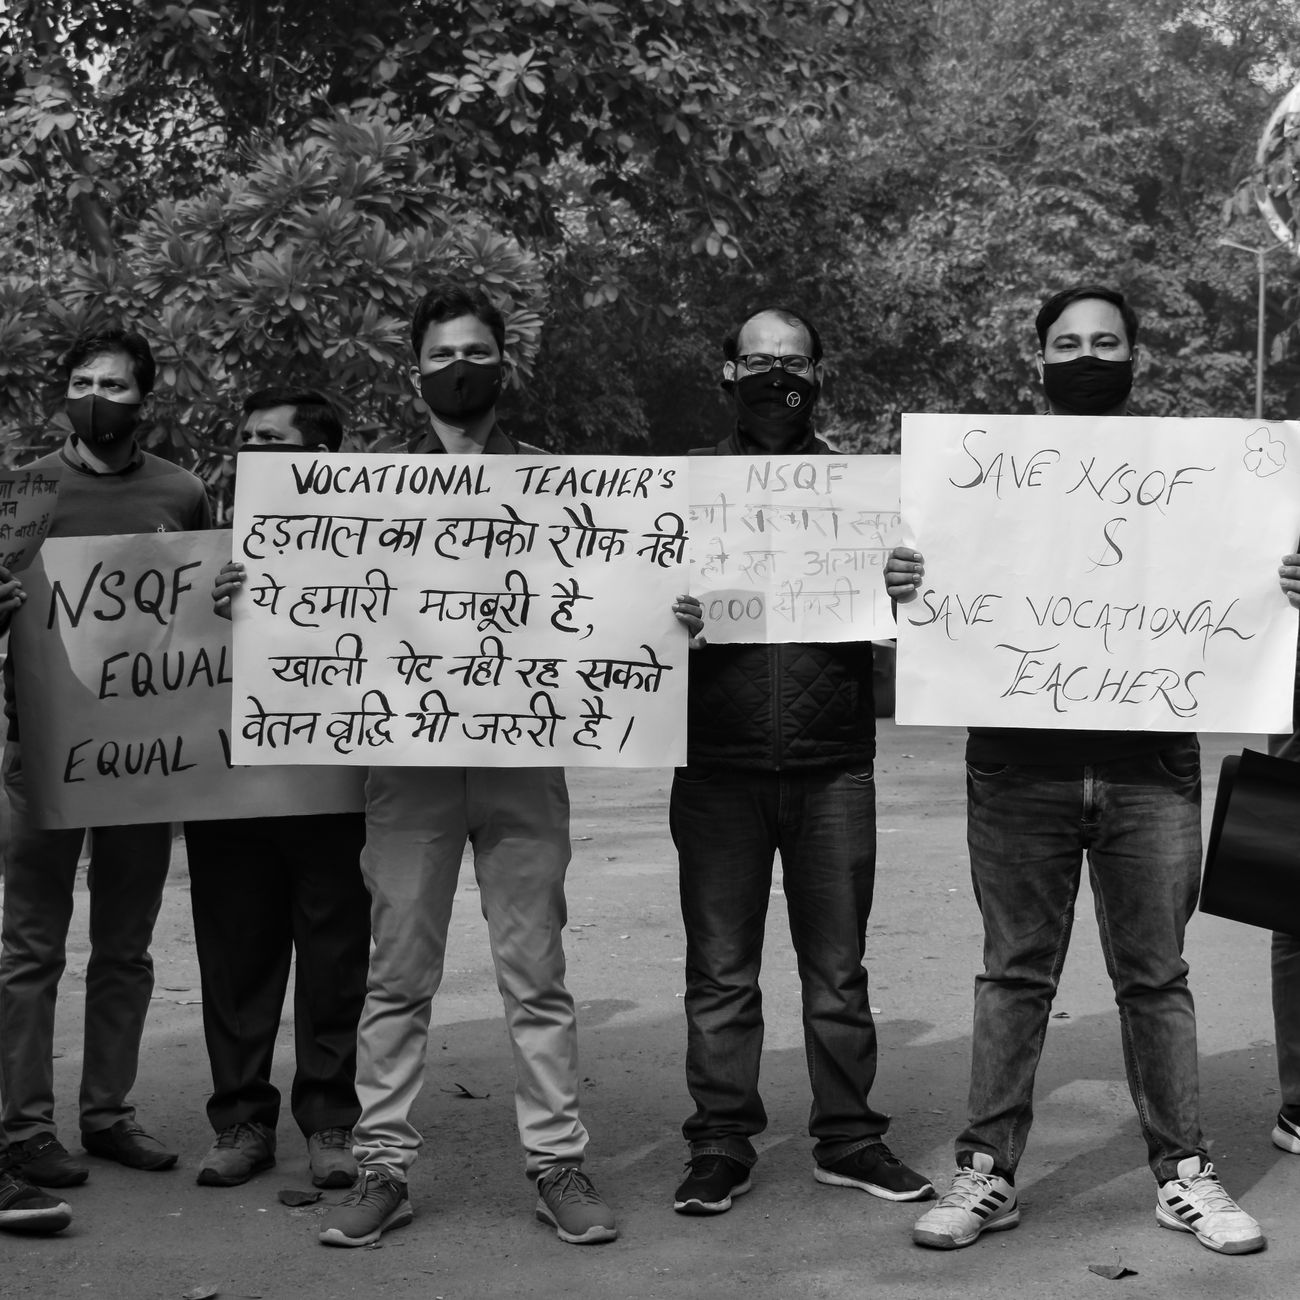 NSQF
EQUAL
EQUAL
VOCATIONAL TEACHER'S
हड़ताल का हमको शौक नही
ये हमारी मजबूरी है,
खाली पेट नही रह सकते
वेतन वृद्धि भी जरुरी है।
NSQF
सरकारी स्कूल
हो रहा
सैलरी
SAVE NSQF
&
SAVE VOCATIONAL
TEACHERS